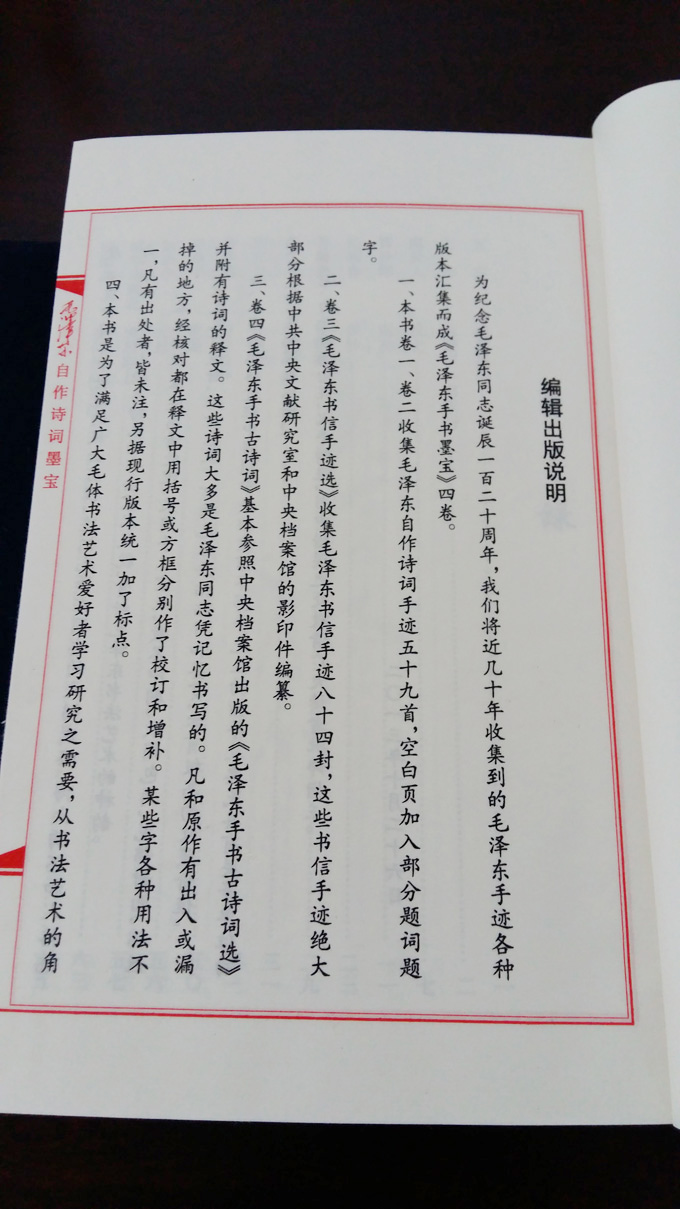 编辑出版说明
为纪念毛泽东同志诞辰一百二十周年，我们将近几十年收集到的毛泽东手迹各种
版本汇集而成《毛泽东手书墨宝》四卷。
一、本书卷一、卷二收集毛泽东自作诗词手迹五十九首，空白页加入部分题词题
字。
二、卷三《毛泽东书信手迹选》收集毛泽东书信手迹八十四封，这些书信手迹绝大
部分根据中共中央文献研究室和中央档案馆的影印件编纂。
三、卷四《毛泽东手书古诗词》基本参照中央档案馆出版的《毛泽东手书古诗词选》
并附有诗词的释文。这些诗词大多是毛泽东同志凭记忆书写的。凡和原作有出入或漏
掉的地方，经核对都在释文中用括号或方框分别作了校订和增补。某些字各种用法不
一，凡有出处者，皆未注，另据现行版本统一加了标点。
四、本书是为了满足广大毛体书法艺术爱好者学习研究之需要，从书法艺术的角
毛泽东自作诗词墨宝